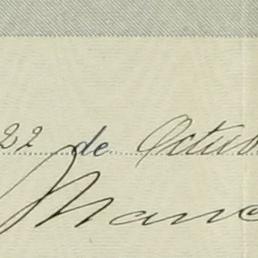 22 de Octub
Manc